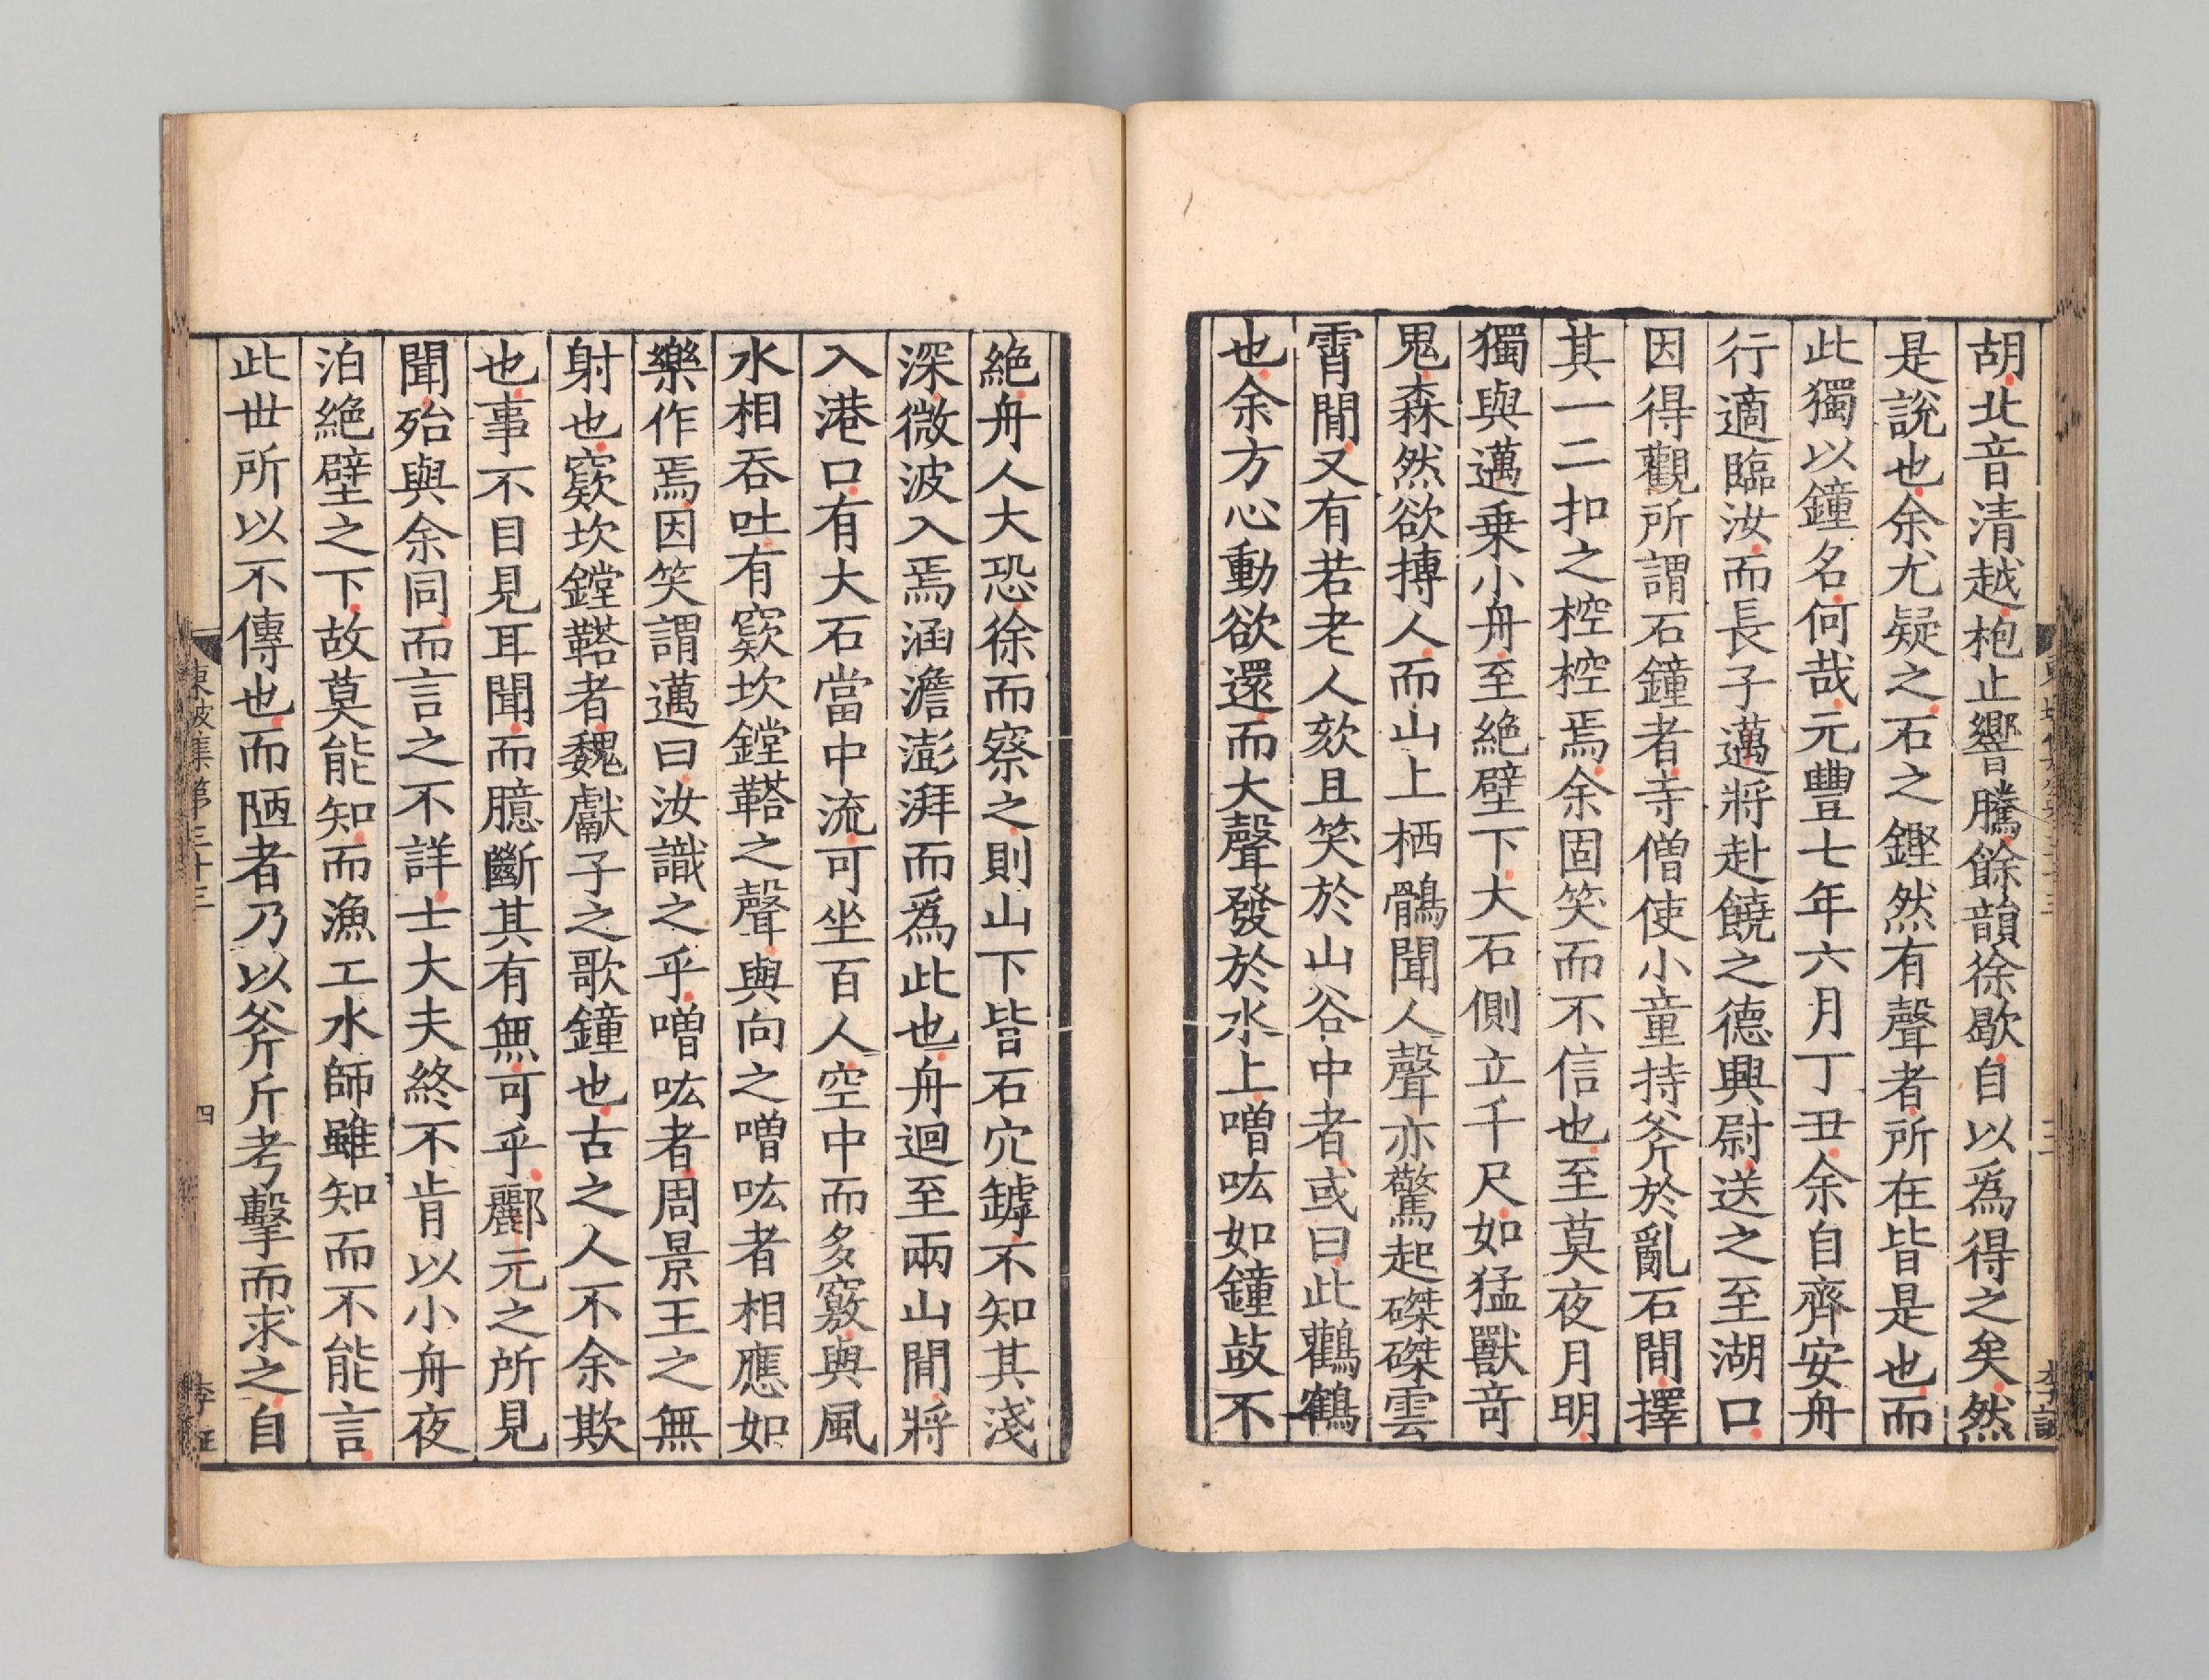 胡北音清越枹止響騰餘韻徐歇自以爲得之矣然
是說也余尤疑之石之鏗然有聲者所在皆是也而
此獨以鐘名何哉元豐七年六月丁丑余自齊安舟
行適臨汝而長子邁將赴饒之德興尉送之至湖口
因得觀所謂石鐘者寺僧使小童持斧於亂石間擇
其一二扣之椌椌焉余固笑而不信也至莫夜月明
獨與邁乗小舟至絶壁下大石側立千尺如猛獸竒
鬼森然欲搏人而山上栖鶻聞人聲亦驚起磔磔雲
霄閒又有若老人欬且笑於山谷中者或曰此鸛鶴
也余方心動欲還而大聲發於水上噌吰如鐘鼓不
絶舟人大恐徐而察之則山下皆石穴罅不知其淺
深微波入焉涵澹澎湃而爲此也舟迴至兩山閒將
入港口有大石當中流可坐百人空中而多竅與風
水相吞吐有窾坎鏜鞳之聲與向之噌吰者相應如
樂作焉因笑謂邁曰汝識之乎噌吰者周景王之無
射也窾坎鏜鞳者魏獻子之歌鐘也古之人不余欺
也事不目見耳聞而臆斷其有無可乎酈元之所見
聞殆與余同而言之不詳士大夫終不肯以小舟夜
泊絶壁之下故莫能知而漁工水師雖知而不能言
此世所以不傳也而陋者乃以斧斤考擊而求之自
東坡集第三十三
四